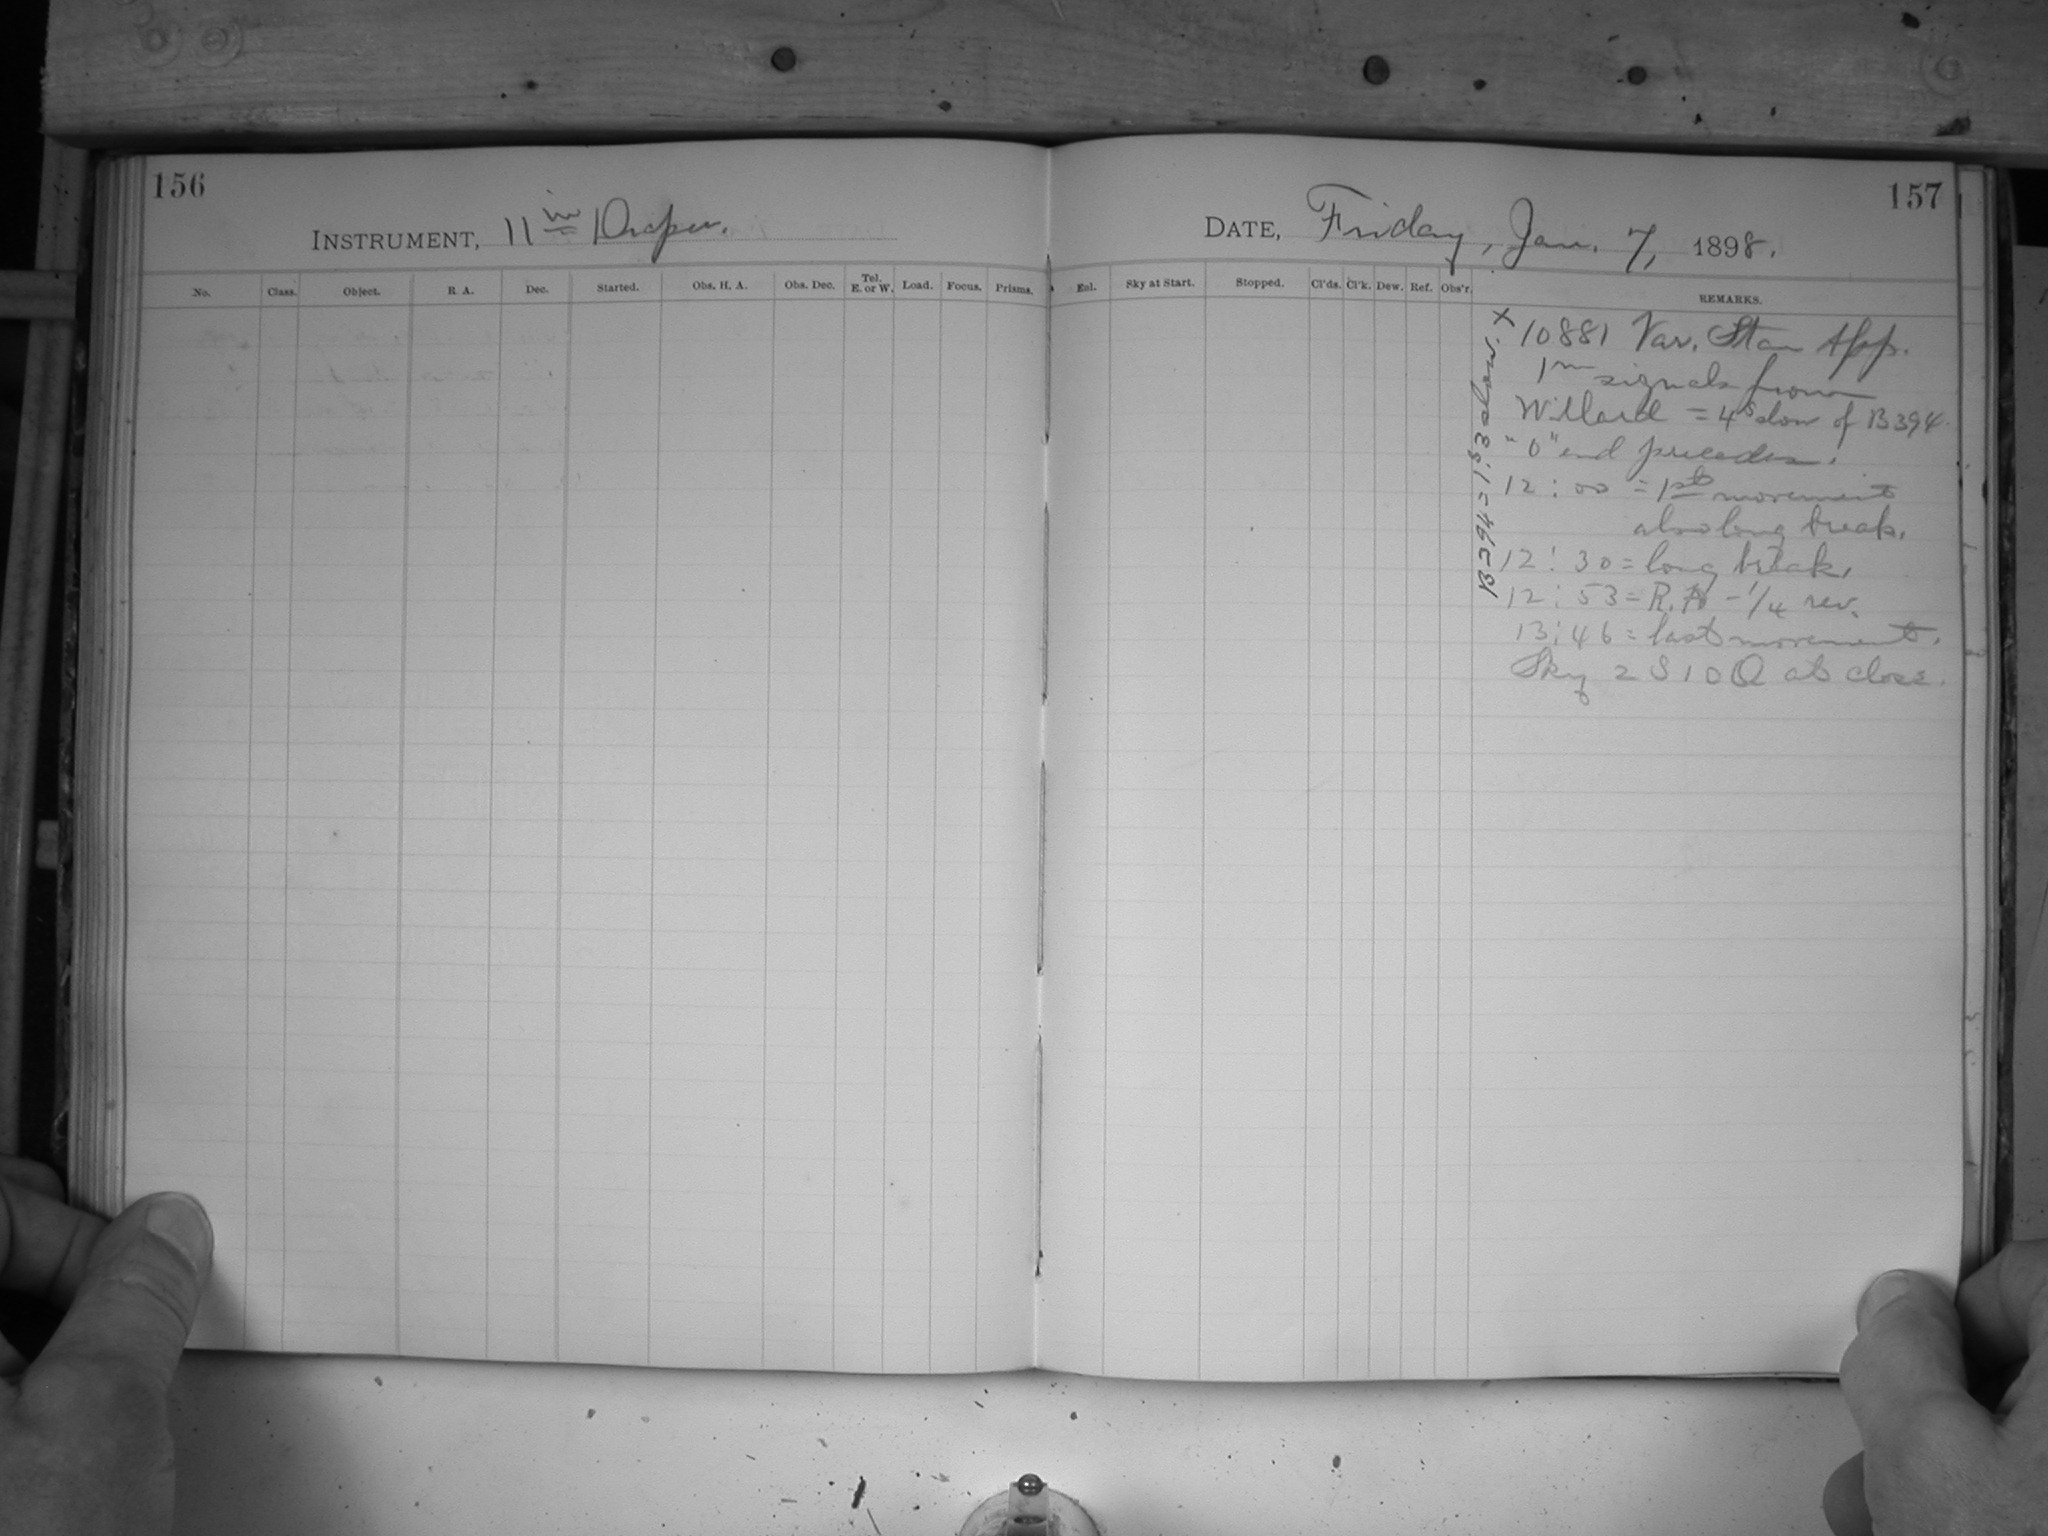 156
INSTRUMENT, 11 in Draper.
No. Class. Object. R. A. Dec. Started. Obs. H. A. Obs. Dec. Tel. E. or W. Load. Focus. Prisms.
157
DATE, Friday, Jan. 7, 1898.
Enl. Sky at Start. Stopped. Cl'ds. Cl'k. Dew. Ref. Obs'r. REMARKS.
X
10881 Var. Star App.
1m signals from
Willard = 4s slow of B 394.
"0" end precedes.
12 : 00 = 1st movement
also long break.
12 : 30 = long break.
12 : 53 = R.A. - 1/4 rev.
13 : 46 = last movement.
Sky 2 S 10 Q at close.
B-394 = 1s.3 slow.